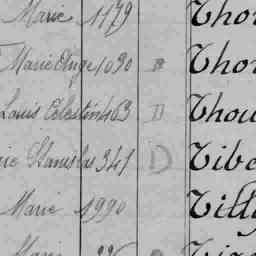 Marie 1179 Thou
Marie Ange 1090 B Thou
Louis Célestin 463 D Thou
ie Stanislas 341 D Tibe
Marie 1990 Till
Marie